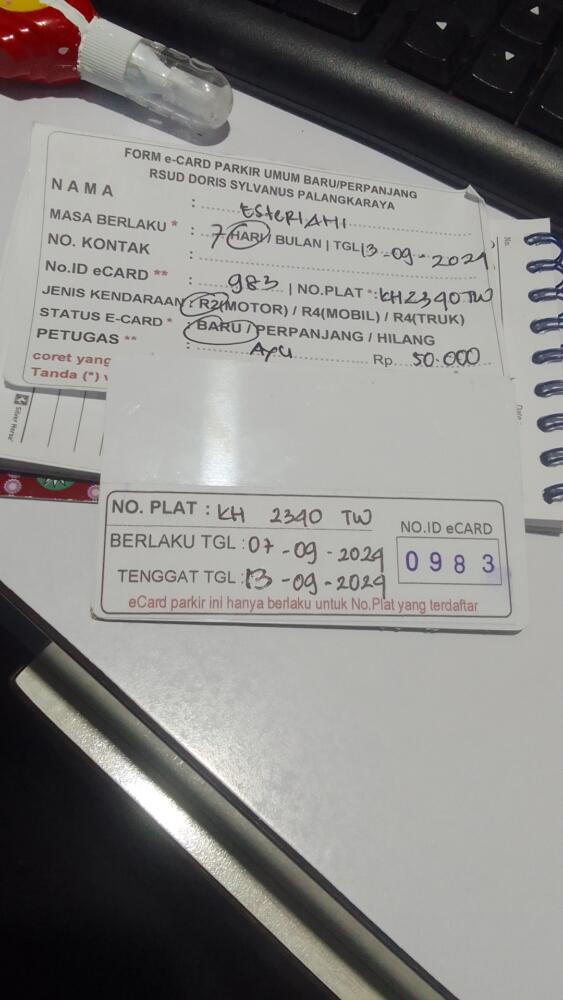 FORM e-CARD PARKIR UMUM BARU/PERPANJANG
RSUD DORIS SYLVANUS PALANGKARAYA
NAMA : ESTERIANI
MASA BERLAKU * : 7 HARI / BULAN | TGL 13-09-2024
NO. KONTAK :
No.ID eCARD ** : 983 | NO.PLAT * : KH 2340 TW
JENIS KENDARAAN : R2(MOTOR) / R4(MOBIL) / R4(TRUK)
STATUS E-CARD * : BARU / PERPANJANG / HILANG
PETUGAS ** : Ayu Rp. 50.000
coret yang
Tanda (*)
No.
Date :
NO. PLAT : KH 2340 TW
NO.ID eCARD
BERLAKU TGL : 07-09-2024
0983
TENGGAT TGL : 13-09-2024
eCard parkir ini hanya berlaku untuk No.Plat yang terdaftar